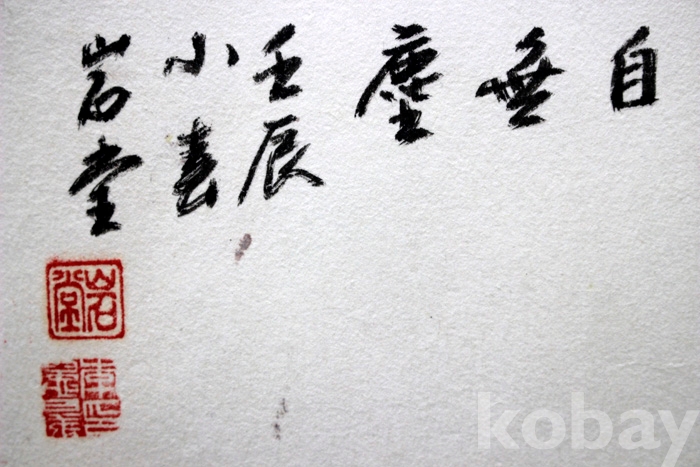 自
無
塵
壬辰
小春
岩堂
岩堂
kobay